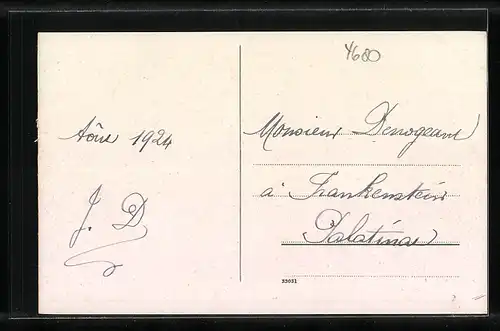 4680
Aôut 1924
J. D
Monsieur Denogeant
à Frankenstein
Palatinat
32031